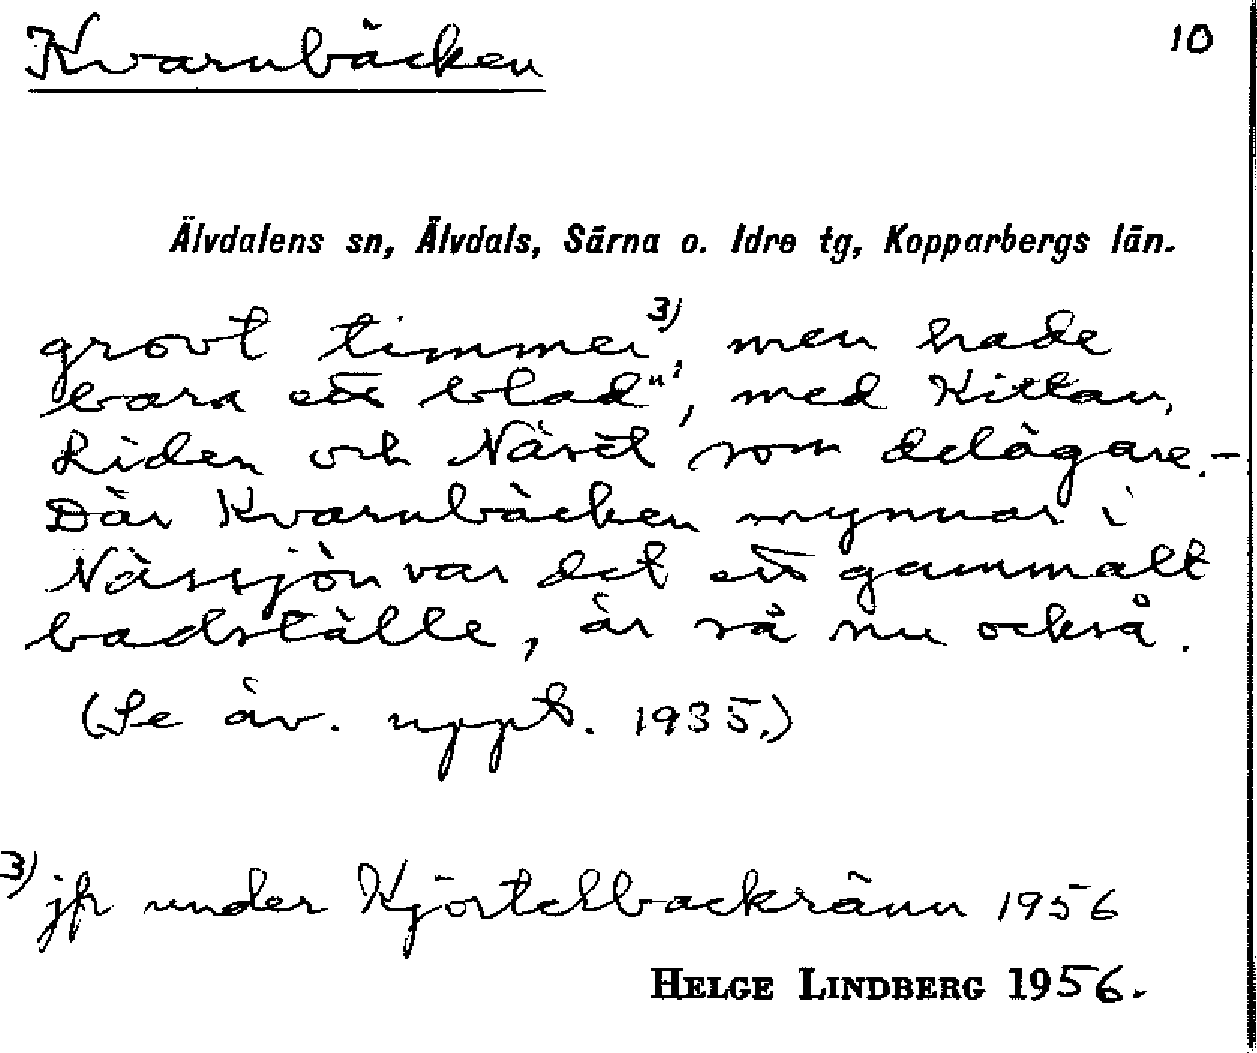 Kvarnbäcken 10
Älvdalens sn, Älvdals, Särna o. Idre tg, Kopparbergs län.
grovt timmer 3), men hade
bara ett blad", med Kittan,
Liden och Näset som delägare.–
Där Kvarnbäcken mynnar i
Nässjön var det ett gammalt
badställe, är så nu också.
(Se äv. uppt. 1935.)
3) jfr under Kjörtelbackränn 1956
HELGE LINDBERG 1956.